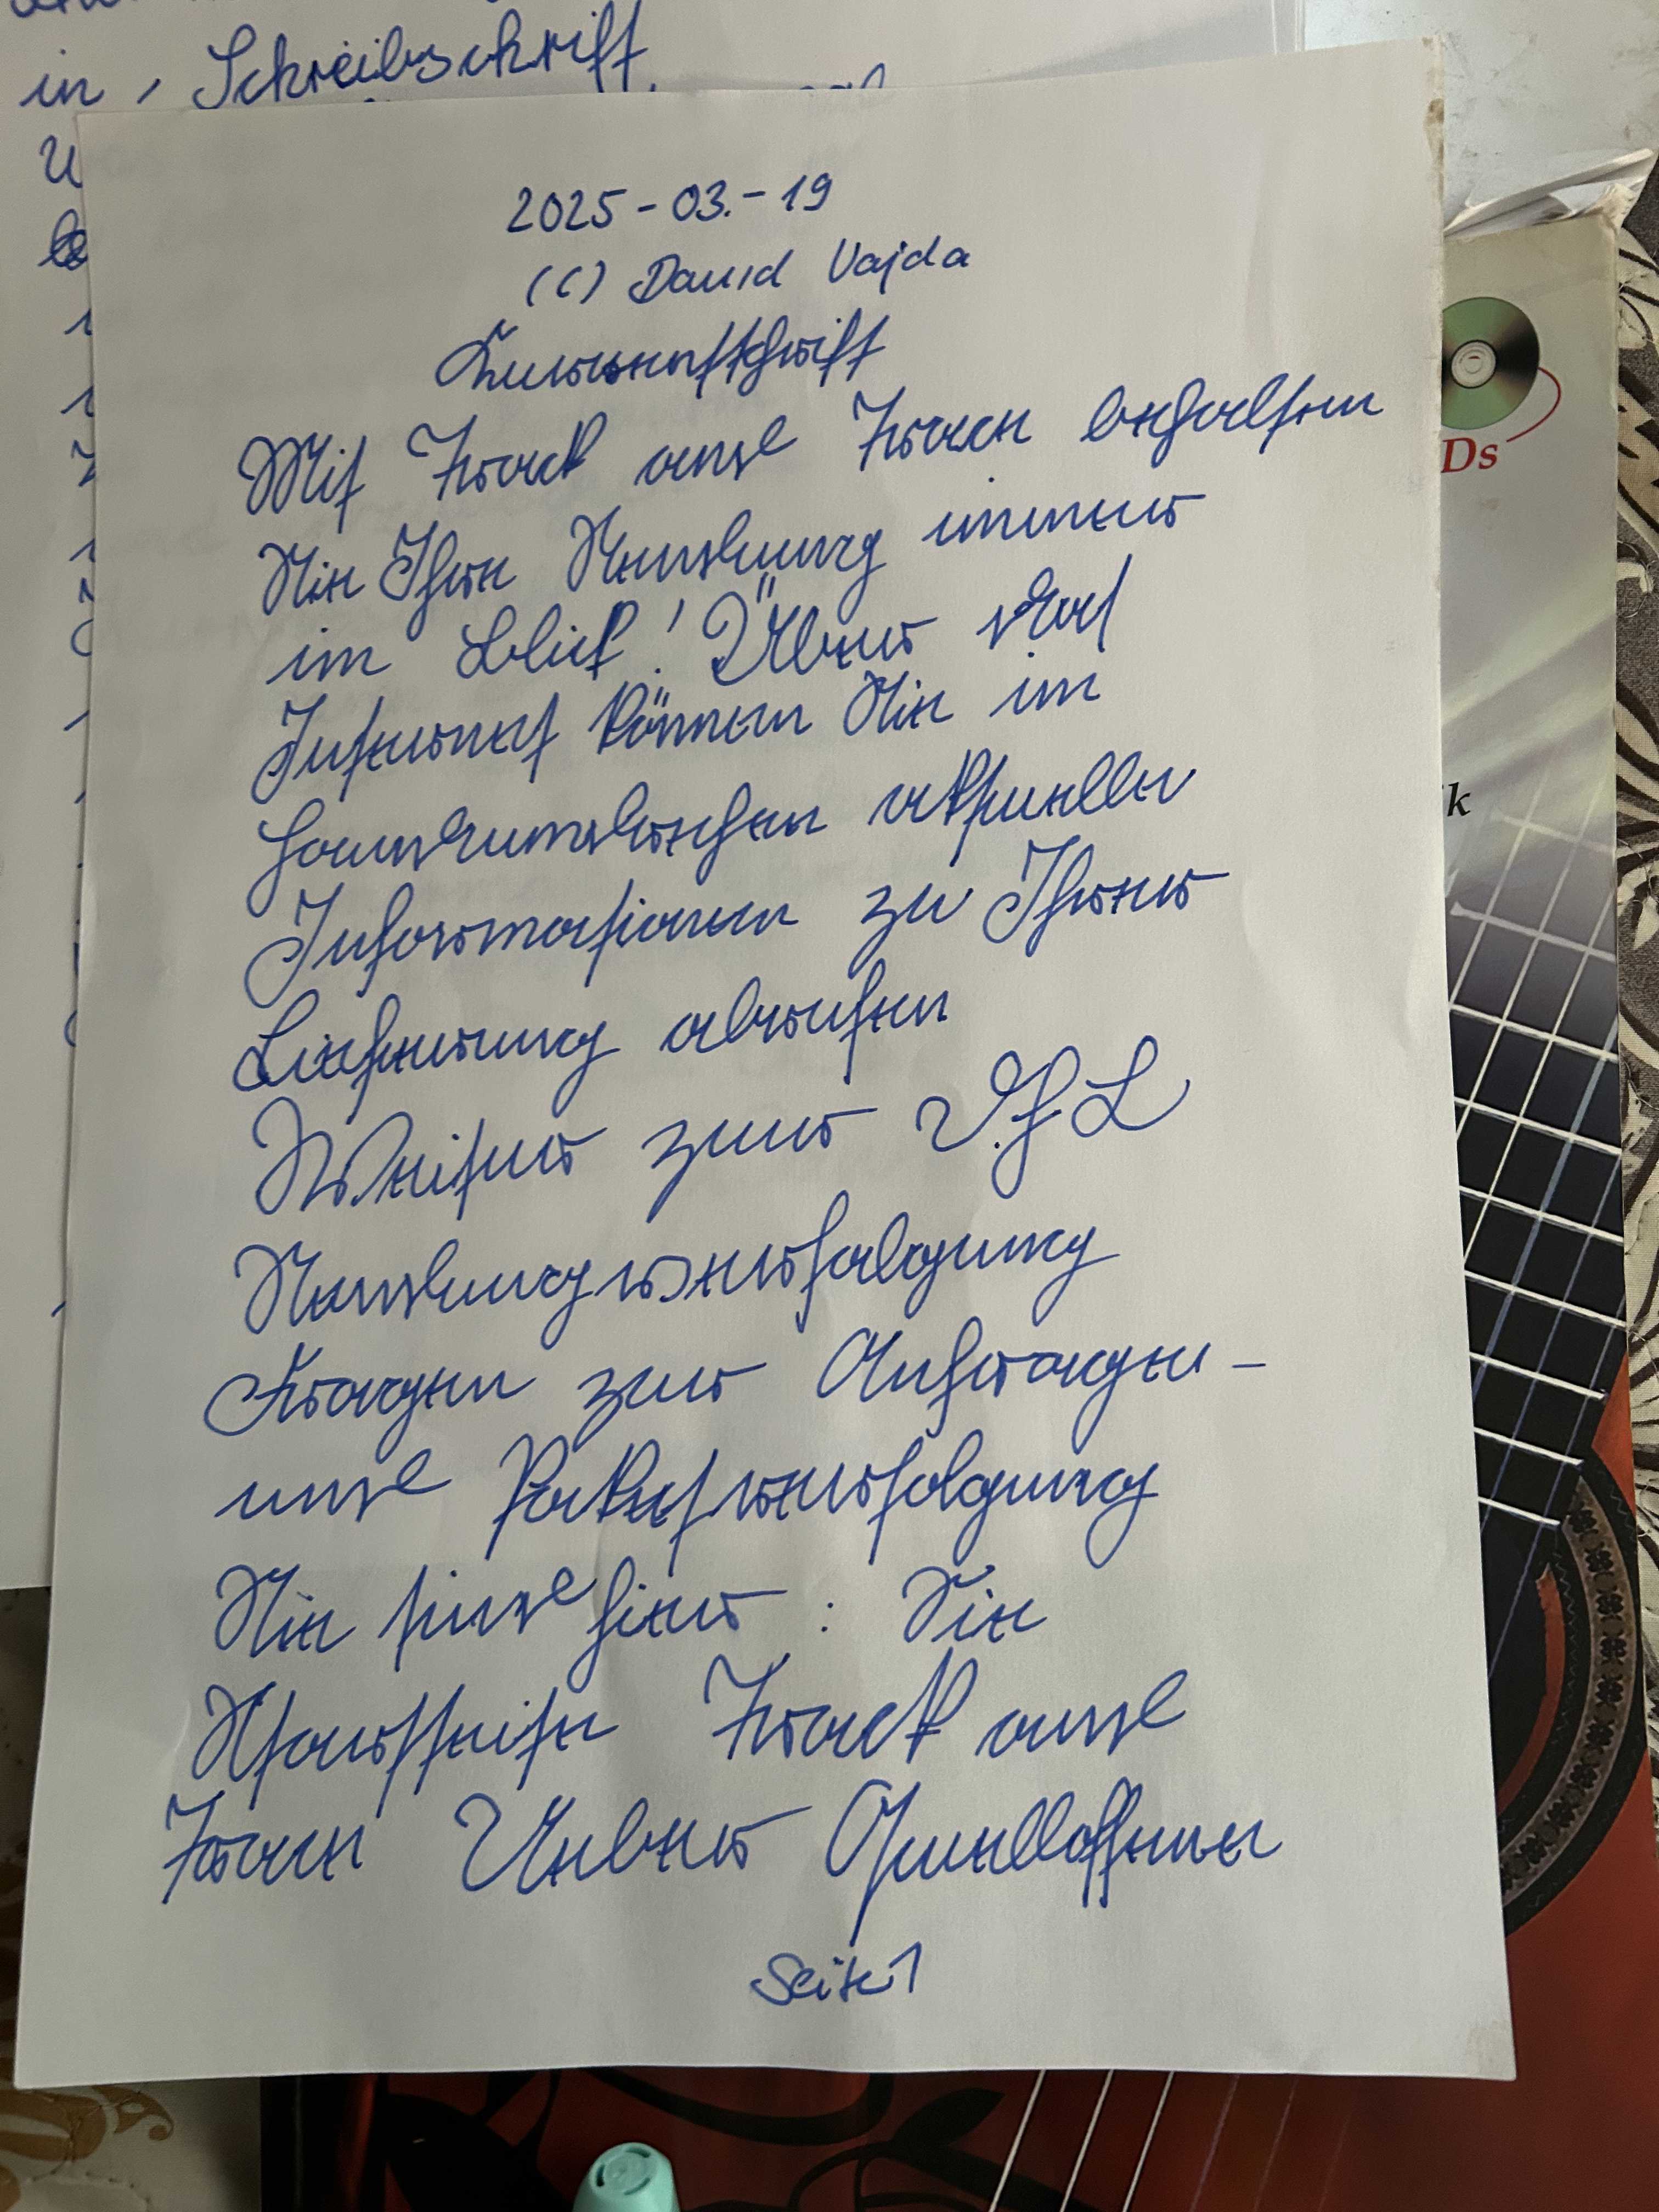 in, Schreibschrift
2025-03.-19
(C) David Vajda
Kurrentschrift
Mit Track and Trace behalten
Sie Ihre Sendung immer
im Blick! Über das
Internet können Sie im
Handumdrehen aktuelle
Informationen zu Ihrer
Lieferung abrufen
Weiter zur
Sendungsverfolgung
Fragen zur Anfragen-
und Paketverfolgung
Sie sind hier: Sie
Startseite Track and
Trace Ueber
Seite 1
DDs
k